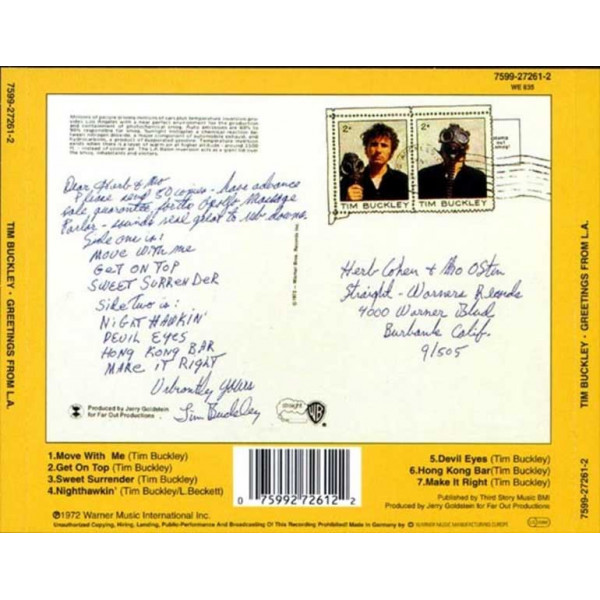 7599-27261-2
WE 835
Millions of people driving millions of cars plus temperature inversion provides Los Angeles with a new perfect environment for the production and containment of photochemical smog. Auto emissions are
2¢
2¢
TIM BUCKLEY
TIM BUCKLEY
Dear Herb & Mo
Please send 50 copies - have advance
sale guarantee, Ditto Apollo Massage
Parlor - sounds real great to rub downs.
Side one is:
MOVE WITH ME
GET ON TOP
SWEET SURRENDER
Side two is:
NIGHT HAWKIN'
DEVIL EYES
HONG KONG BAR
MAKE IT RIGHT
Vibrantly Yours
Tim Buckley
Herb Cohen & Mo Ostin
Straight - Warners Records
4000 Warner Blvd
Burbank Calif.
91505
©1972 - Warner Bros. Records Inc.
Produced by Jerry Goldstein
for Far Out Productions
straight
WB
1.Move With Me (Tim Buckley)
2.Get On Top (Tim Buckley)
3.Sweet Surrender (Tim Buckley)
4.Nighthawkin' (Tim Buckley/L.Beckett)
5.Devil Eyes (Tim Buckley)
6.Hong Kong Bar(Tim Buckley)
7.Make It Right (Tim Buckley)
0 75992 72612 2
Published by Third Story Music BMI
Produced by Jerry Goldstein for Far Out Productions
℗©1972 Warner Music International Inc.
Unauthorized Copying, Hiring, Lending, Public Performance And Broadcasting Of This Recording Prohibited! Made in Germany by © WARNER MUSIC MANUFACTURING EUROPE
7599-27261-2
TIM BUCKLEY · GREETINGS FROM L.A.
7599-27261-2
TIM BUCKLEY · GREETINGS FROM L.A.